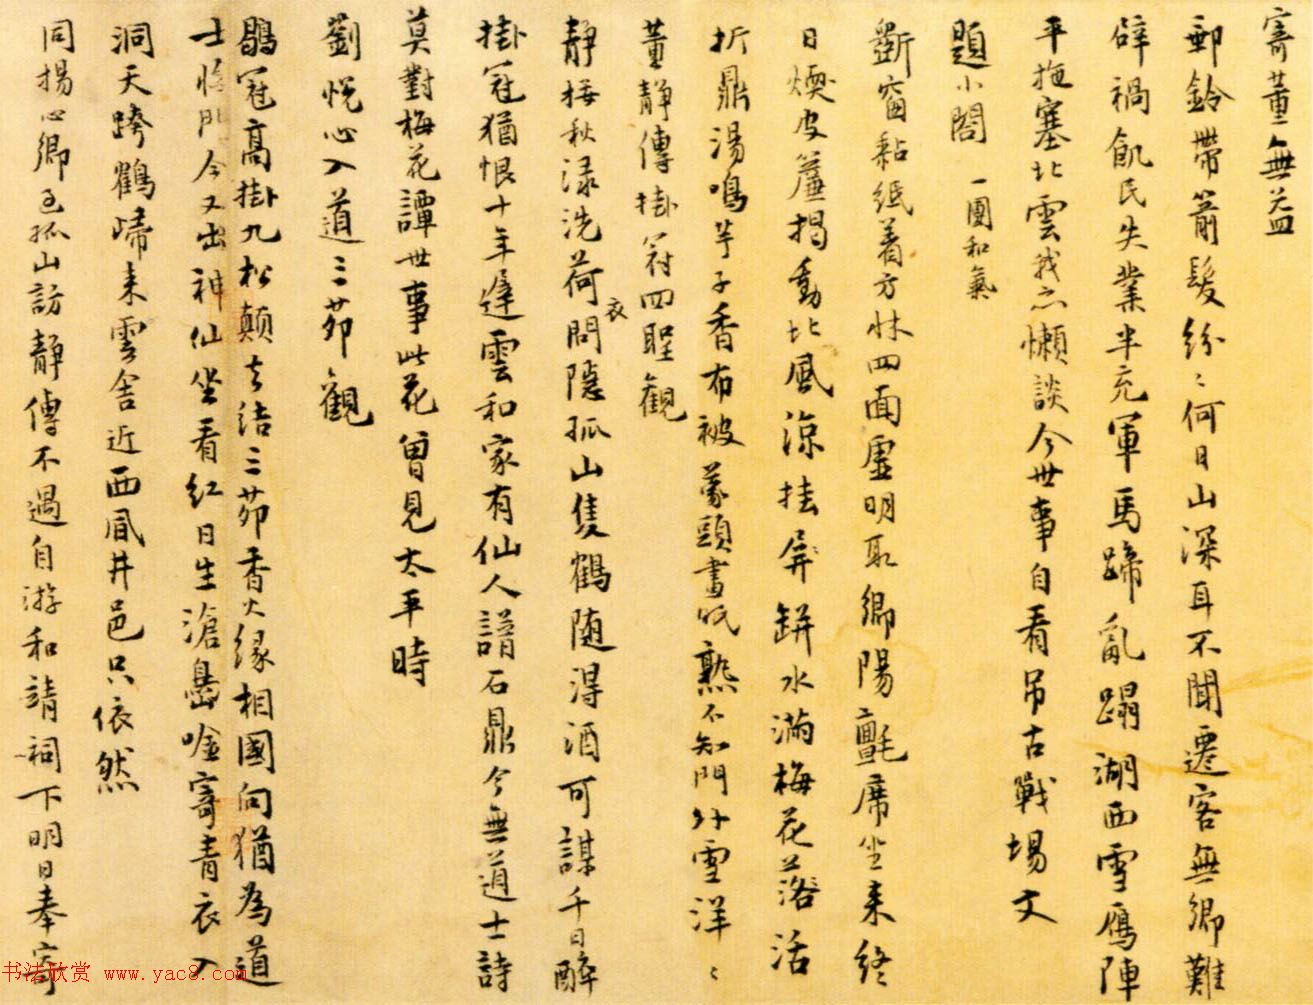 寄董無益
郵鈴帶箭髮紛〻何日山深耳不聞遷客無鄉難
辟禍飢民失業半充軍馬蹄亂蹋湖西雪鴈陣
平拖塞北雲我亦懶談今世事自看吊古戰場文
題小閣 一團和氣
斷窗黏紙着方牀四面虛明取鄉陽氈席坐来終
日煗皮簾揭動北風涼挂屏缾水滿梅花落活
折鼎湯鳴芋子香布被蒙頭書味熟不知門外雪洋〻
董靜傳掛冠四聖觀
靜接秋渌洗荷衣問隱孤山隻鶴随淂酒可謀千日醉
掛冠猶恨十年遲雲和家有仙人譜石鼎今無道士詩
莫對梅花譚世事此花曾見太平時
劉悅心入道三茆觀
鶡冠髙掛九松顛去結三茆香火縁相國向猶為道
士將門今又出神仙坐看紅日生滄島唫寄青衣入
洞天跨鶴歸来雲舍近西風井邑只依然
同楊心卿至孤山訪靜傳不遇自游和靖祠下明日奉寄
书法欣赏 www.yac8.com